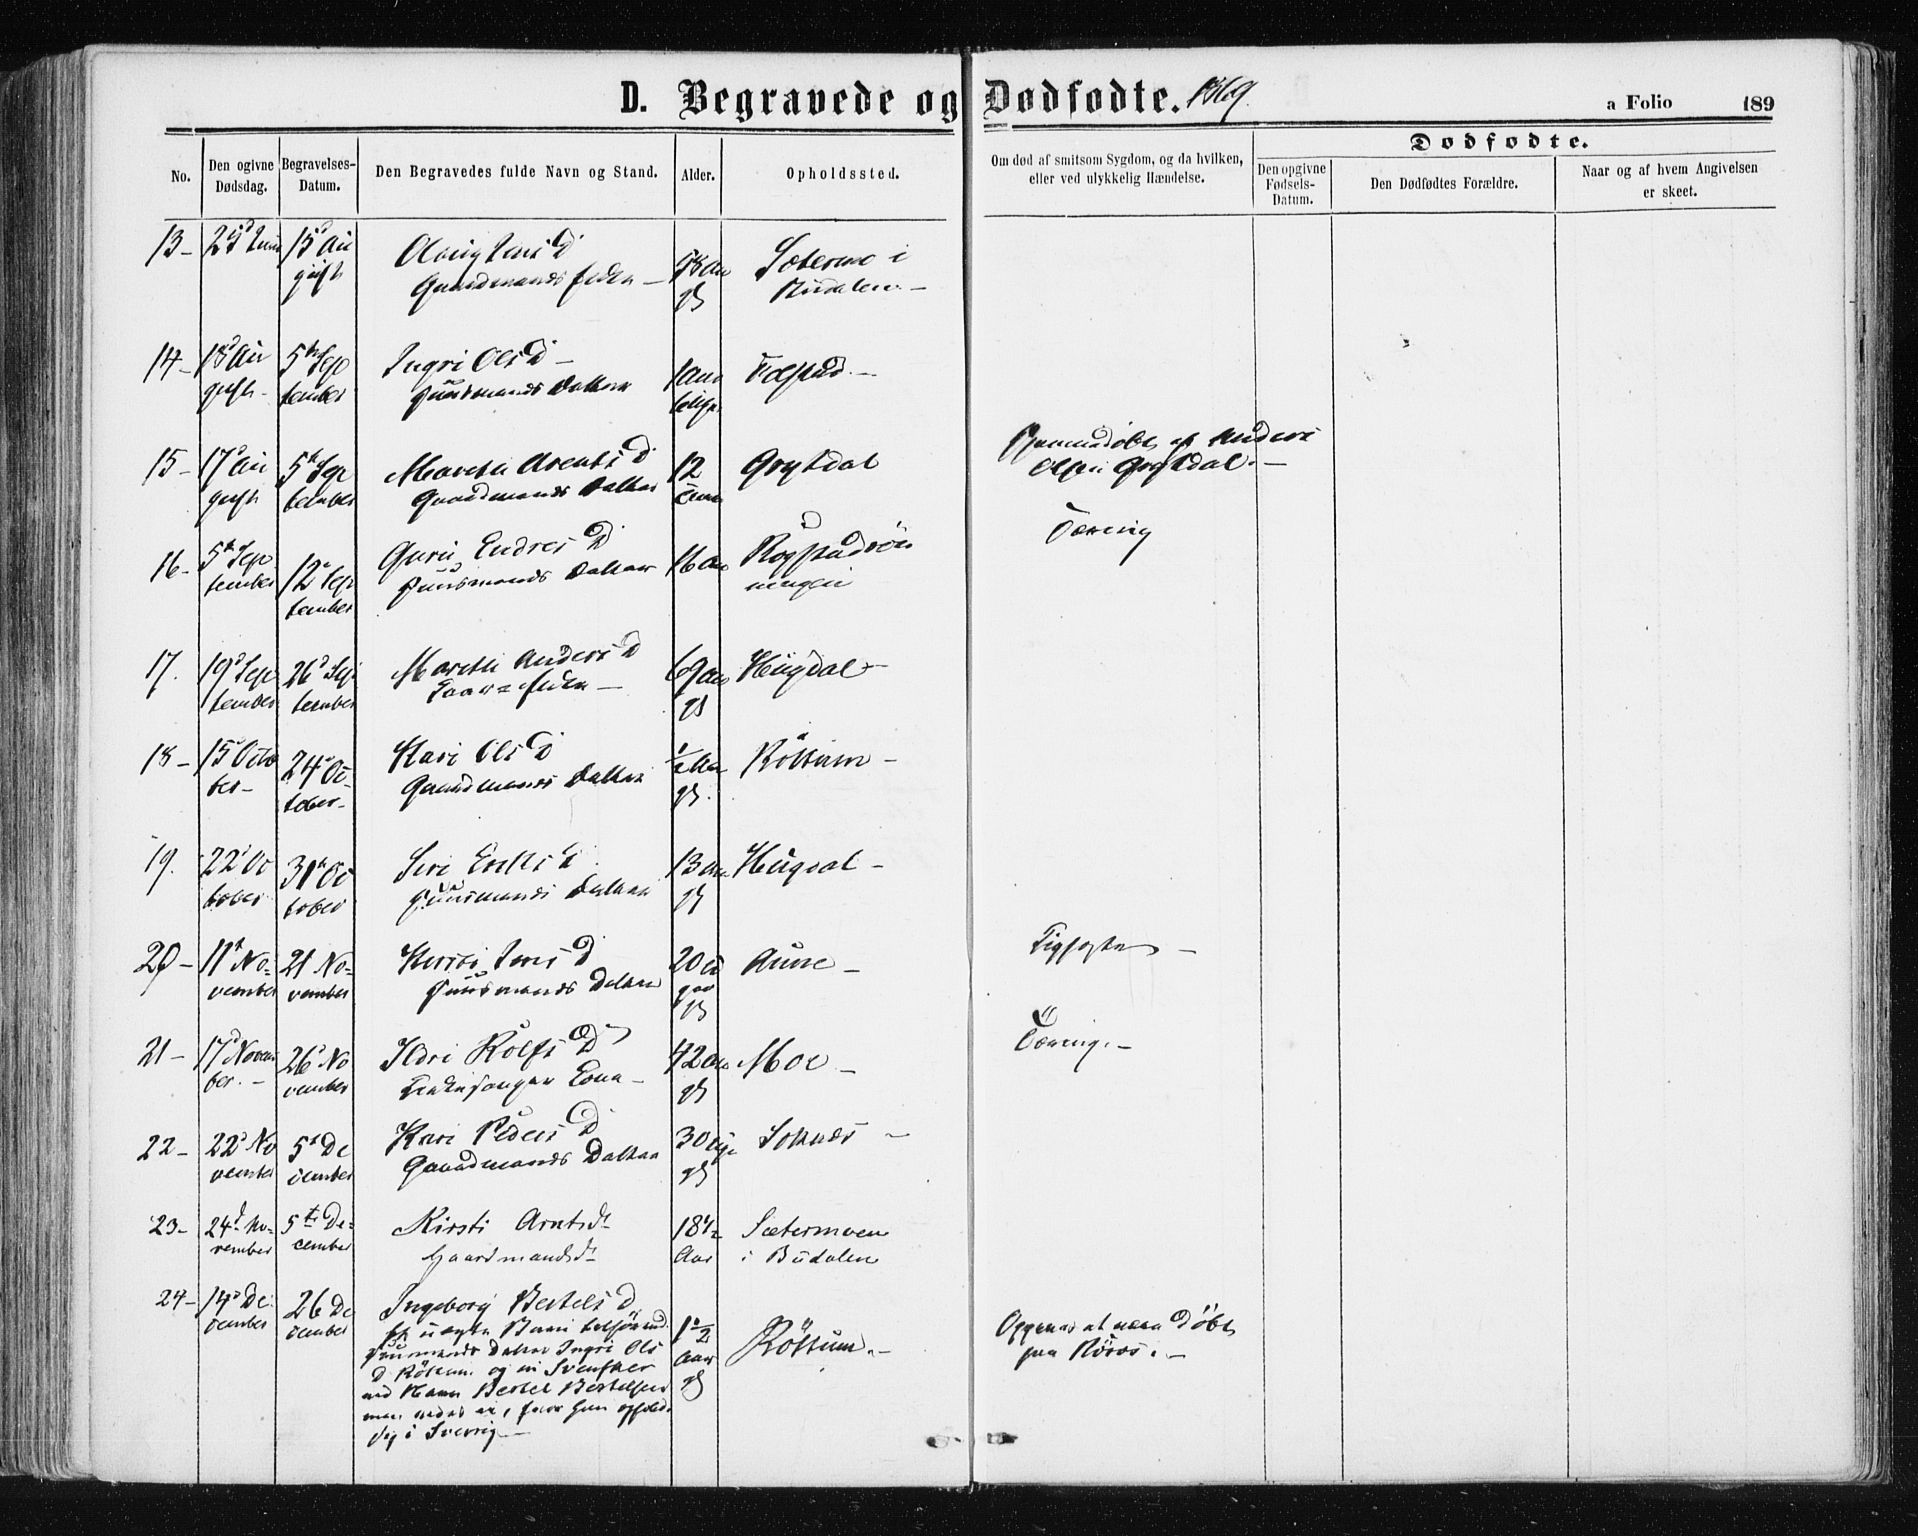 D. Begravede og Dødfødte. 1869.
a Folio 189
No.
Den ogivne Dødsdag.
Begravelses-Datum.
Den Begravedes fulde Navn og Stand.
Alder.
Opholdssted.
Om død af smitsom Sygdom, og da hvilken,
eller ved ulykkelig Hændelse.
Dødfødte.
Den opgivne Fødsels-Datum.
Den Dødfødtes Forældre.
Naar og af hvem Angivelsen
er skeet.
13-
15 Au
gust
D
Gaardmands
Sætermo i
Budalen.-
14-
18 Au
gust-
5te Sep
tember
Ingri Ols D-
Huusmands Datter
15-
17 Au
gust
5te Sep
tember
Marethe Arents D.
Gaardmands Datter
12
Grytdal
Hjemmedøbt af Anders
Olsen Grytdal.-
16-
5te Sep
tember
12 Sep
tember
Guru Endres D
Huusmands Datter
16 Aar
Rogstadrön
ningen
Tæring
17.
19 Sep
tember
26 Sep
tember
Marethe Anders D
69 aar
gl
Hugdal-
18-
15 Octo
ber-
24 Oc
tober-
Kari Ols D
Gaardmands Datter
gl.
Röttum-
19.
22 Oc
tober
31te Oc
tober
Siri Eriks D.
Huusmands Datter
13 Aar
gl
Hugdal-
20-
11te No-
vember
21 No-
vember
D
Huusmands Datter
20
gl
Aune-
21-
17 Novem
ber.-
26 No
vember
Ildri Rolfs D
Kirkesanger Kona-
42 aar
gl
Moe-
Tæring.-
22-
22 No
vember
5te De
cember
Kari Peders D
Gaardmands Datter
30
gl
Soknæs-
23-
24d No-
vember
5te De-
cember
Kirsti Arntsdr
Gaardmandsdr
18½
Aar
Sætermoen
i Budalen
24-
14 De
cember
26 De
cember
Ingeborg Bertels D
Huusmands Datter Ingri Ols
D Röttum. og en Svensker
ved Navn Bertel Bertelsen
sig i Sverrig-
1½
Aar
gl
Röttum.-
Opgives at være döbt
paa Röros.-